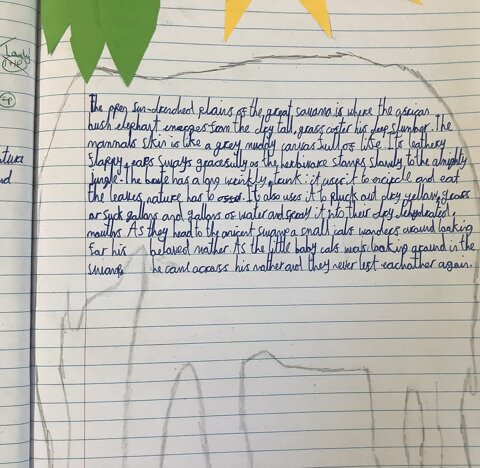 Lovely
TNP
ature
nd
The open sun-drenched plains of the great savanna is where the african
bush elephant emerges from the dry tall, grass after his deep slumber. The
mammals skin is like a grey muddy canvas full of life. Its leathery
flappy, ears sways gracesfully as the herbivore stamps slowly to the almighty
jungle. The brute has a long wrinkly, trunk: it uses it to encircle and eat
the leaves, nature has to It also uses it to pluck out dry yellow, grass
or suck gallons and gallons of water and spray it into their dry, dehydrated,
mouths. As they head to the ancient swamp a small calf wanders around looking
for his beloved mother. As the little baby calf was looking around in the
swamp, he came across his mother and they never left eachother again.